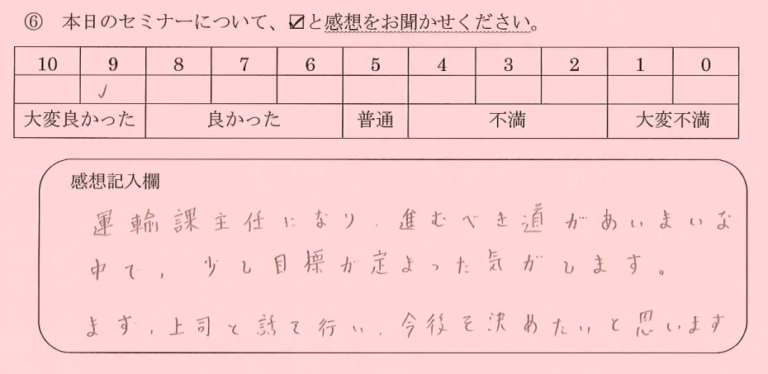 ⑥ 本日のセミナーについて、☑と感想をお聞かせください。
10 9 8 7 6 5 4 3 2 1 0
✓
大変良かった 良かった 普通 不満 大変不満
感想記入欄
運輸課主任になり、進むべき道があいまいな
中で、少し目標が定まった気がします。
まず、上司と話て行い、今後を決めたいと思います